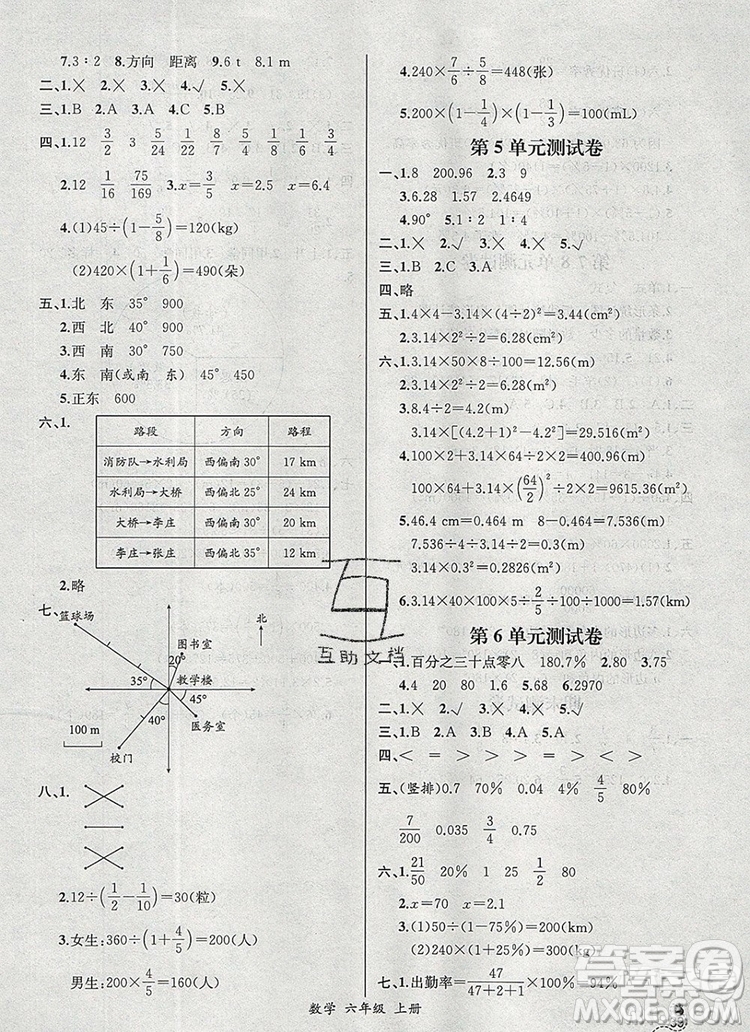 7.3∶2 8.方向 距离 9.6 t 8.1 m
二、1.× 2.× 3.× 4.√ 5.×
三、1.B 2.A 3.A 4.C 5.B
四、1.12 3/2 3/4 5/24 5/22 8/5 3/10 8/9
2.12 1/16 75/169 3.x=3/2 x=2.5 x=6.4
4.(1)45÷(1-5/8)=120(kg)
(2)420×(1+1/6)=490(朵)
五、1.北 东 35° 900
2.西 北 20° 900
3.西 南 30° 750
4.东 南(或南 东) 45° 450
5.正东 600
六、1.
路段 方向 路程
消防队→水利局 西偏南30° 17 km
水利局→大桥 西偏北25° 24 km
大桥→李庄 西偏南30° 20 km
李庄→张庄 西偏北20° 12 km
2.略
七、
篮球场
北
图书室
20°
35° 教学楼
45°
40°
医务室
100 m
校门
八、1.
2.12÷(1/2-1/10)=30(粒)
3.女生:360÷(1+4/5)=200(人)
男生:200×4/5=160(人)
4.240×7/6÷5/8=448(张)
5.200×(1-1/4)×(1-1/3)=100(mL)
第5单元测试卷
一、1.8 200.96 2.3 9
3.6.28 1.57 2.4649
4.90° 5.1∶2 1∶4
二、1.× 2.√ 3.× 4.× 5.×
三、1.B 2.C 3.C 4.A 5.A
四、略
五、1.4×4-3.14×2²=3.44(cm²)
2.3.14×2²÷2=6.28(cm²)
六、1.3.14×50×8÷100=12.56(m)
2.3.14×2²÷2=6.28(m²)
3.8.4÷2=4.2(m)
3.14×[(4.2+1)²-4.2²]=29.516(m²)
4.100×2+3.14×64=400.96(m)
100×64+3.14×(64/2)²=9615.36(m²)
5.46.4 cm=0.464 m 8-0.464=7.536(m)
7.536÷4÷3.14÷2=0.3(m)
3.14×0.3²=0.2826(m²)
6.3.14×40×100×5÷1/2÷100÷1000=1.256(km)
第6单元测试卷
一、1.百分之三十点零八 180.7% 2.80 3.75
4.4 20 80 1.6 5.68 6.2970
二、1.× 2.√ 3.× 4.× 5.√
三、1.B 2.B 3.A 4.C 5.A
四、< = > > > <
五、(竖排)0.7 70% 0.04 4% 4/5 80%
7/200 0.035 3/4 75%
六、1.21/50 20% 1 25 1/2
2.x=70 x=2.1
3.(1)50÷(1-75%)=200(km)
(2)240×(1+10%)=264(km)
七、1.出勤率=47/(47+1+2)×100%=94%
数学 六年级 上册
互助文档
答案圈